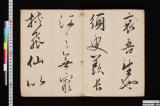 哀吾生之
須臾羨長
江之無窮
挾飛仙以